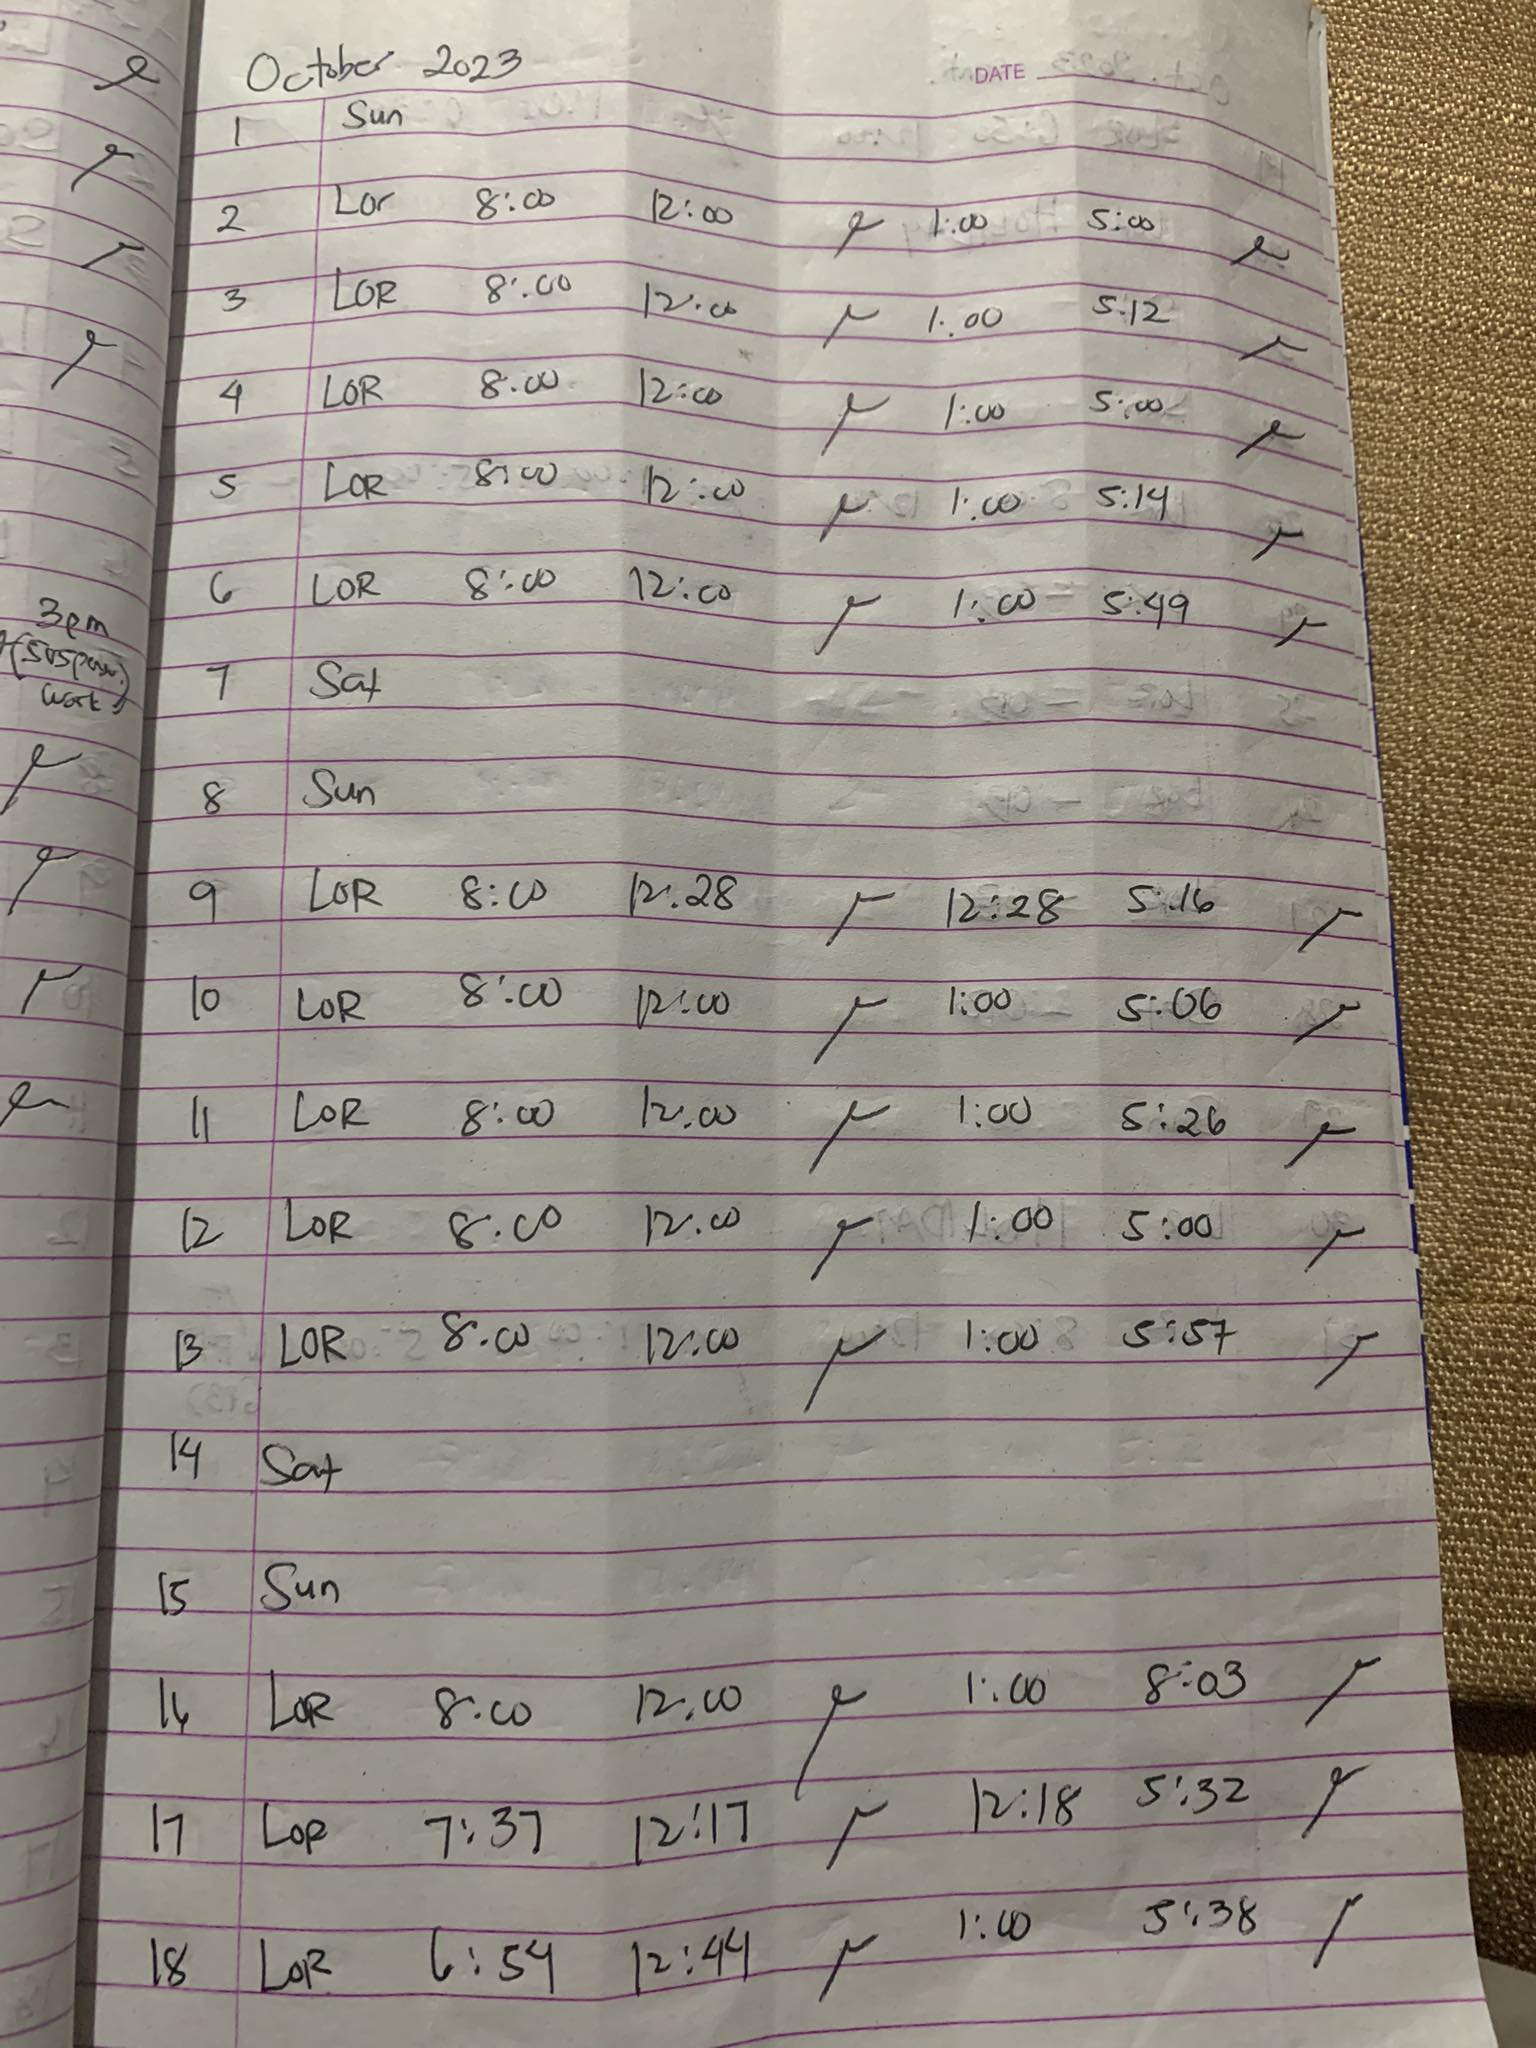 October 2023
DATE
1 Sun
2 Lor 8:00 12:00 1:00 5:00
3 LOR 8:00 12:00 1:00 5:12
4 LOR 8:00 12:00 1:00 5:00
5 LOR 8:00 12:00 1:00 5:14
6 LOR 8:00 12:00 1:00 5:49
3pm
work
7 Sat
8 Sun
9 LOR 8:00 12:28 12:28 5:16
10 LOR 8:00 12:00 1:00 5:06
11 LOR 8:00 12:00 1:00 5:26
12 LOR 8:00 12:00 1:00 5:00
13 LOR 8:00 12:00 1:00 5:57
14 Sat
15 Sun
16 LOR 8:00 12:00 1:00 8:03
17 LOR 7:37 12:17 12:18 5:32
18 LOR 6:54 12:44 1:00 5:38